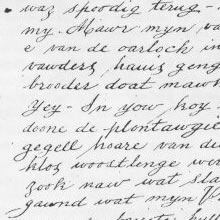 waz spoedig terug -
my. Mawr myn va
e van de oarlock in
vawders, hauis geng
brooder doat mawk
Yey - In yow hoy
doone de plontawgie
gegell hoare van die
klos woostlenge wer
zook naw wat sla
gawnd wat myn V